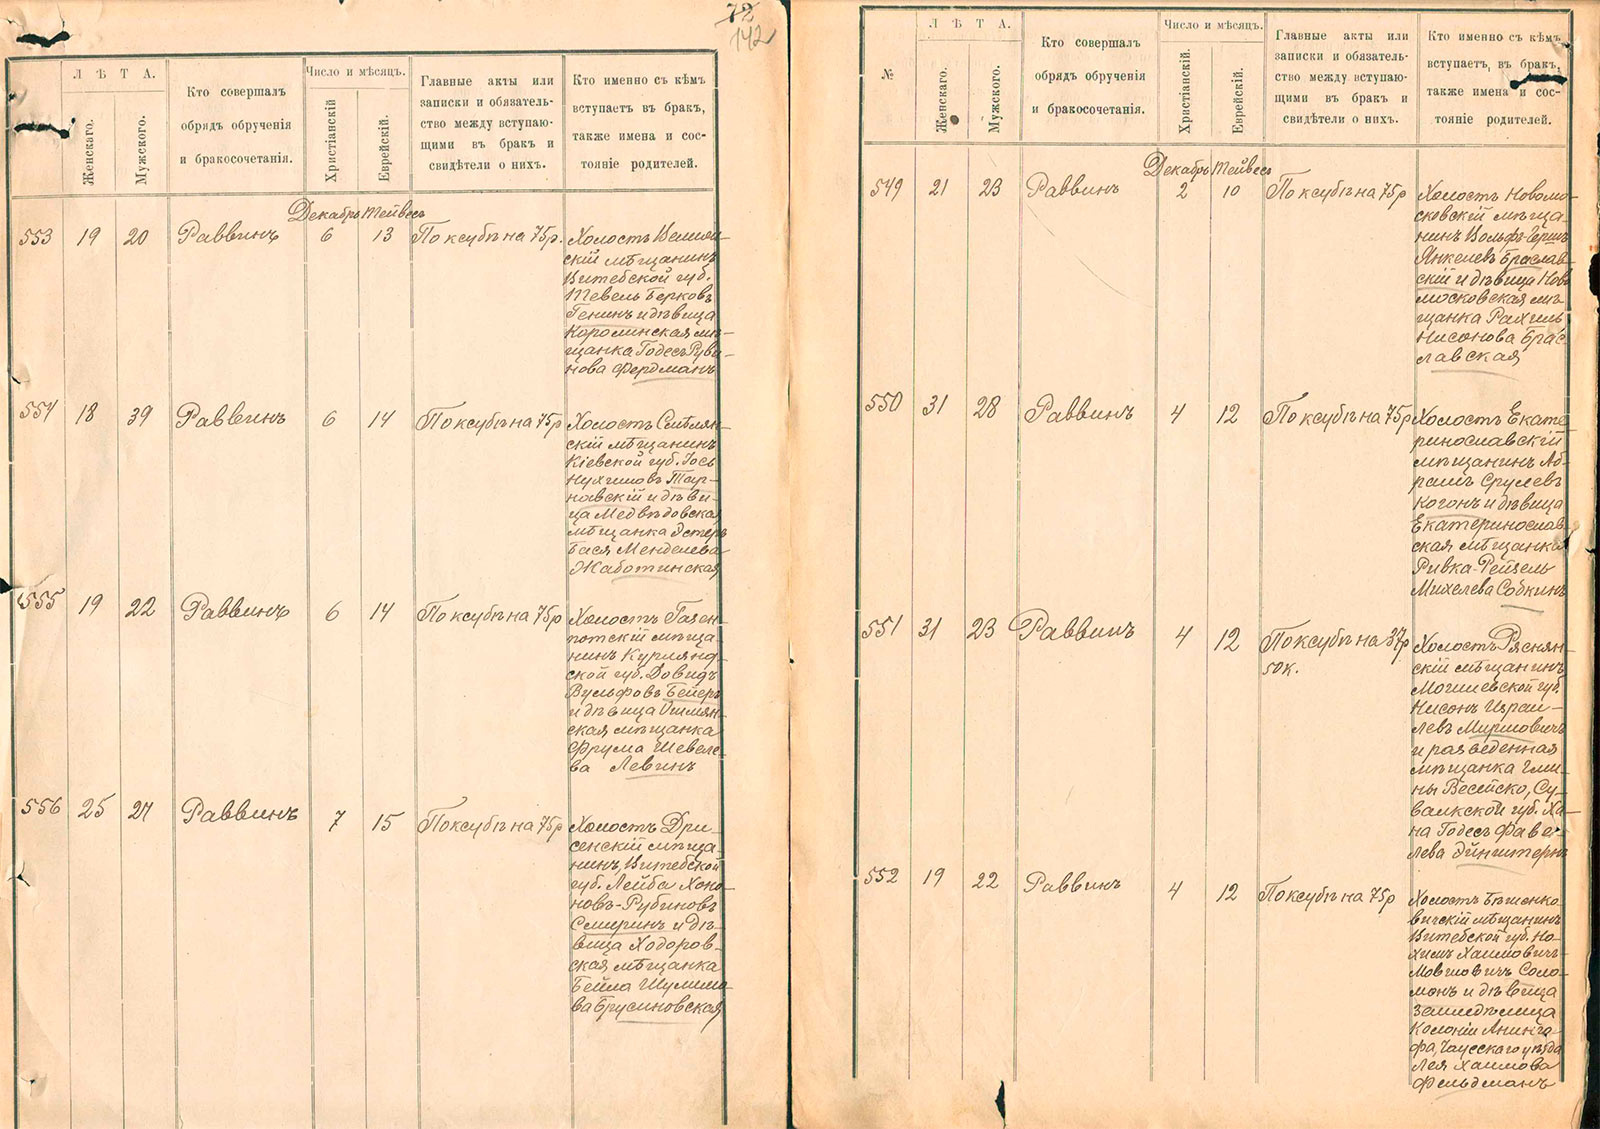 72
142
Л Ѣ Т А.
Женскаго.
Мужского.
Кто совершалъ
обрядъ обрученія
и бракосочетанія.
Число и мѣсяцъ.
Христіанскій
Еврейскій.
Главные акты или
записки и обязатель-
ство между вступаю-
щими въ бракъ и
свидѣтели о нихъ.
Кто именно съ кѣмъ
вступаетъ въ бракъ,
также имена и сос-
тояніе родителей.
Декабрь Тейвесъ
553 19 20 Раввинъ 6 13 По ксубѣ на 75р.
Холостъ Велиж-
скій мѣщанинъ
Витебской губ.
Тевель Берковъ
Генинъ и дѣвица
Короминская мѣ-
щанка Годесъ Руви-
нова Фердманъ
554 18 39 Раввинъ 6 14 По ксубѣ на 75р
Холостъ Смѣлян-
скій мѣщанинъ
Кіевской губ. Іось
Нухимовъ Тар-
навскій и дѣви-
ца Медвѣдовская
мѣщанка Эстеръ
Бася Менделева
Жаботинская
555 19 22 Раввинъ 6 14 По ксубѣ на 75р
Холостъ Газен-
потскій мѣща-
нинъ Курлянд-
ской губ. Довидъ
Вульфовъ Бейеръ
и дѣвица Ошмян-
ская мѣщанка
Фрума Шевеле-
ва Левинъ
556 25 27 Раввинъ 7 15 По ксубѣ на 75р
Холостъ Дри-
сенскій мѣща-
нинъ, Витебской
губ. Лейба Хоно-
новъ-Рубиновъ
Смиринъ и дѣ-
вица Ходоров-
ская мѣщанка
Бейла Шулимо-
ва Брусиновская
№
Л Ѣ Т А.
Женскаго.
Мужского.
Кто совершалъ
обрядъ обрученія
и бракосочетанія.
Число и мѣсяцъ.
Христіанскій
Еврейскій.
Главные акты или
записки и обязатель-
ство между вступаю-
щими въ бракъ и
свидѣтели о нихъ.
Кто именно съ кѣмъ
вступаетъ, въ бракъ,
также имена и сос-
тояніе родителей.
Декабрь Тейвесъ
549 21 23 Раввинъ 2 10 По ксубѣ на 75р
Холостъ Новомо-
сковскій мѣща-
нинъ Вольфъ-Гершъ
Янкелевъ Браслав-
скій и дѣвица Ново
московская мѣ-
щанка Рахиль
Нисонова Брас-
лавская
550 31 28 Раввинъ 4 12 По ксубѣ на 75р
Холостъ Екате-
ринославскій
мѣщанинъ Аб-
рамъ Срулевъ
Когонъ и дѣвица
Екатеринослав-
ская мѣщанка
Ривка-Рейзель
Михелева Собкинъ
551 31 23 Раввинъ 4 12 По ксубѣ на 37р
50к.
Холостъ Ряснян-
скій мѣщанинъ
Могилевской губ.
Нисонъ Израи-
левъ Мирмовичъ
и разведенная
мѣщанка Гми-
ны Вейско, Су-
валкской губ. Ха-
на Годесъ Фаве-
лева Эйнштернъ
552 19 22 Раввинъ 4 12 По ксубѣ на 75р
Холостъ Бѣшенко-
вичскій мѣщанинъ
Витебской губ. Но-
химъ Хаимовичъ-
Мовшовичъ Соло-
монъ и дѣвица
Землед
колоніи
Чаусскаго уѣзда
Лея Хаимова
Фельдманъ